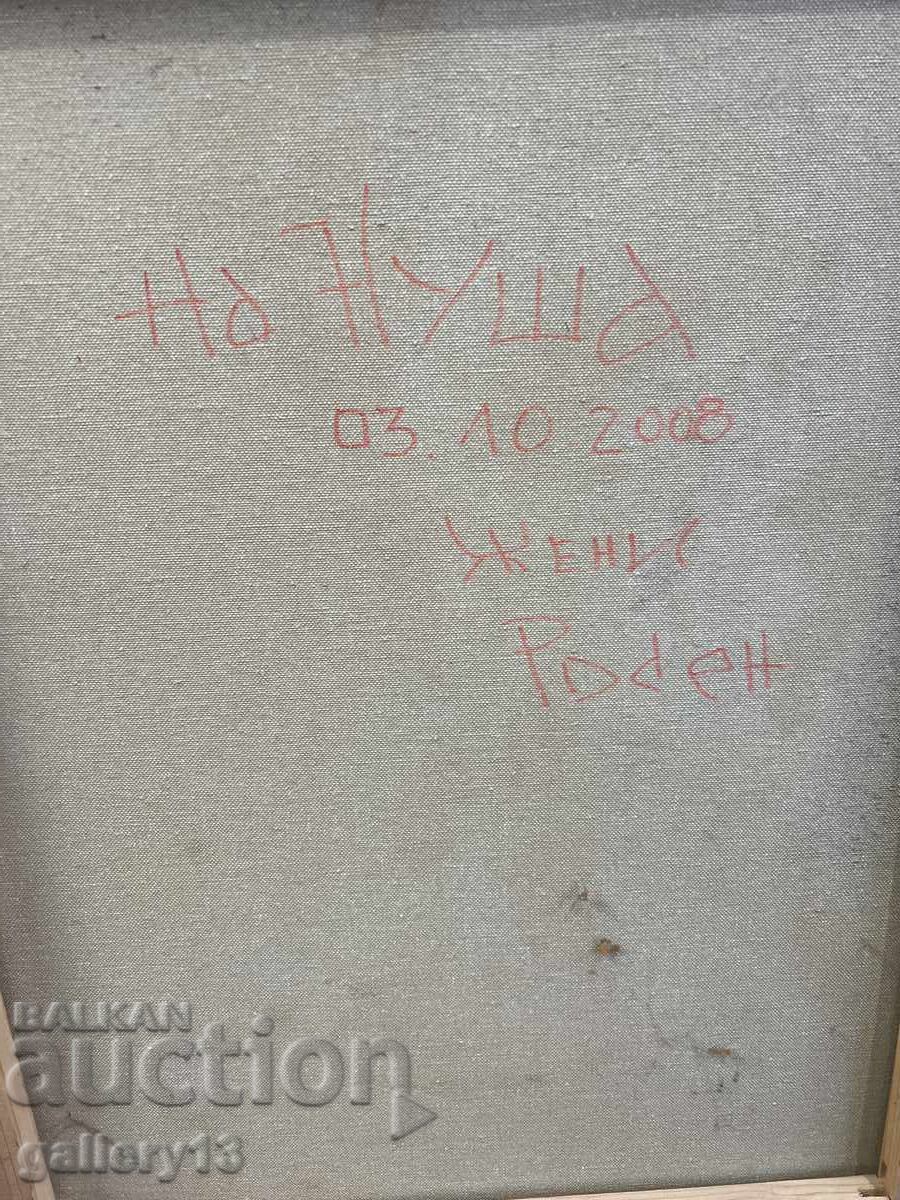 На Нуша
03.10.2008
Жени
Роден
BALKAN
auction
gallery13